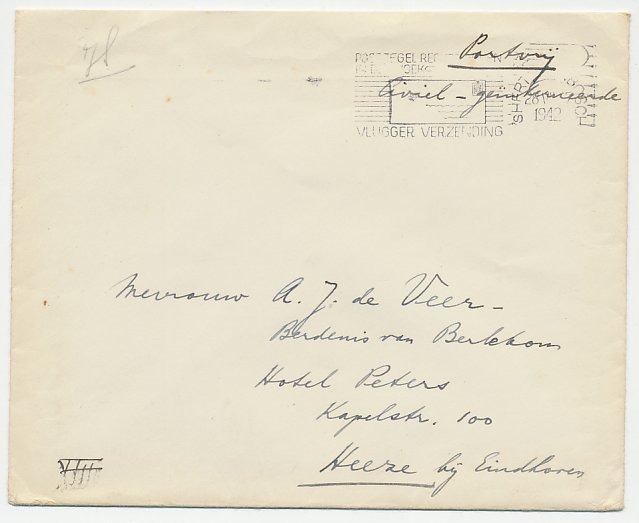 78
Portvrij
POSTZEGEL RE
Civiel - geïnterneerde
VLUGGER VERZENDING
1942
Mevrouw A. J. de Veer -
Berdenis van Berlekom
Hotel Peters
Kapelstr. 100
Heeze bij Eindhoven
VIII